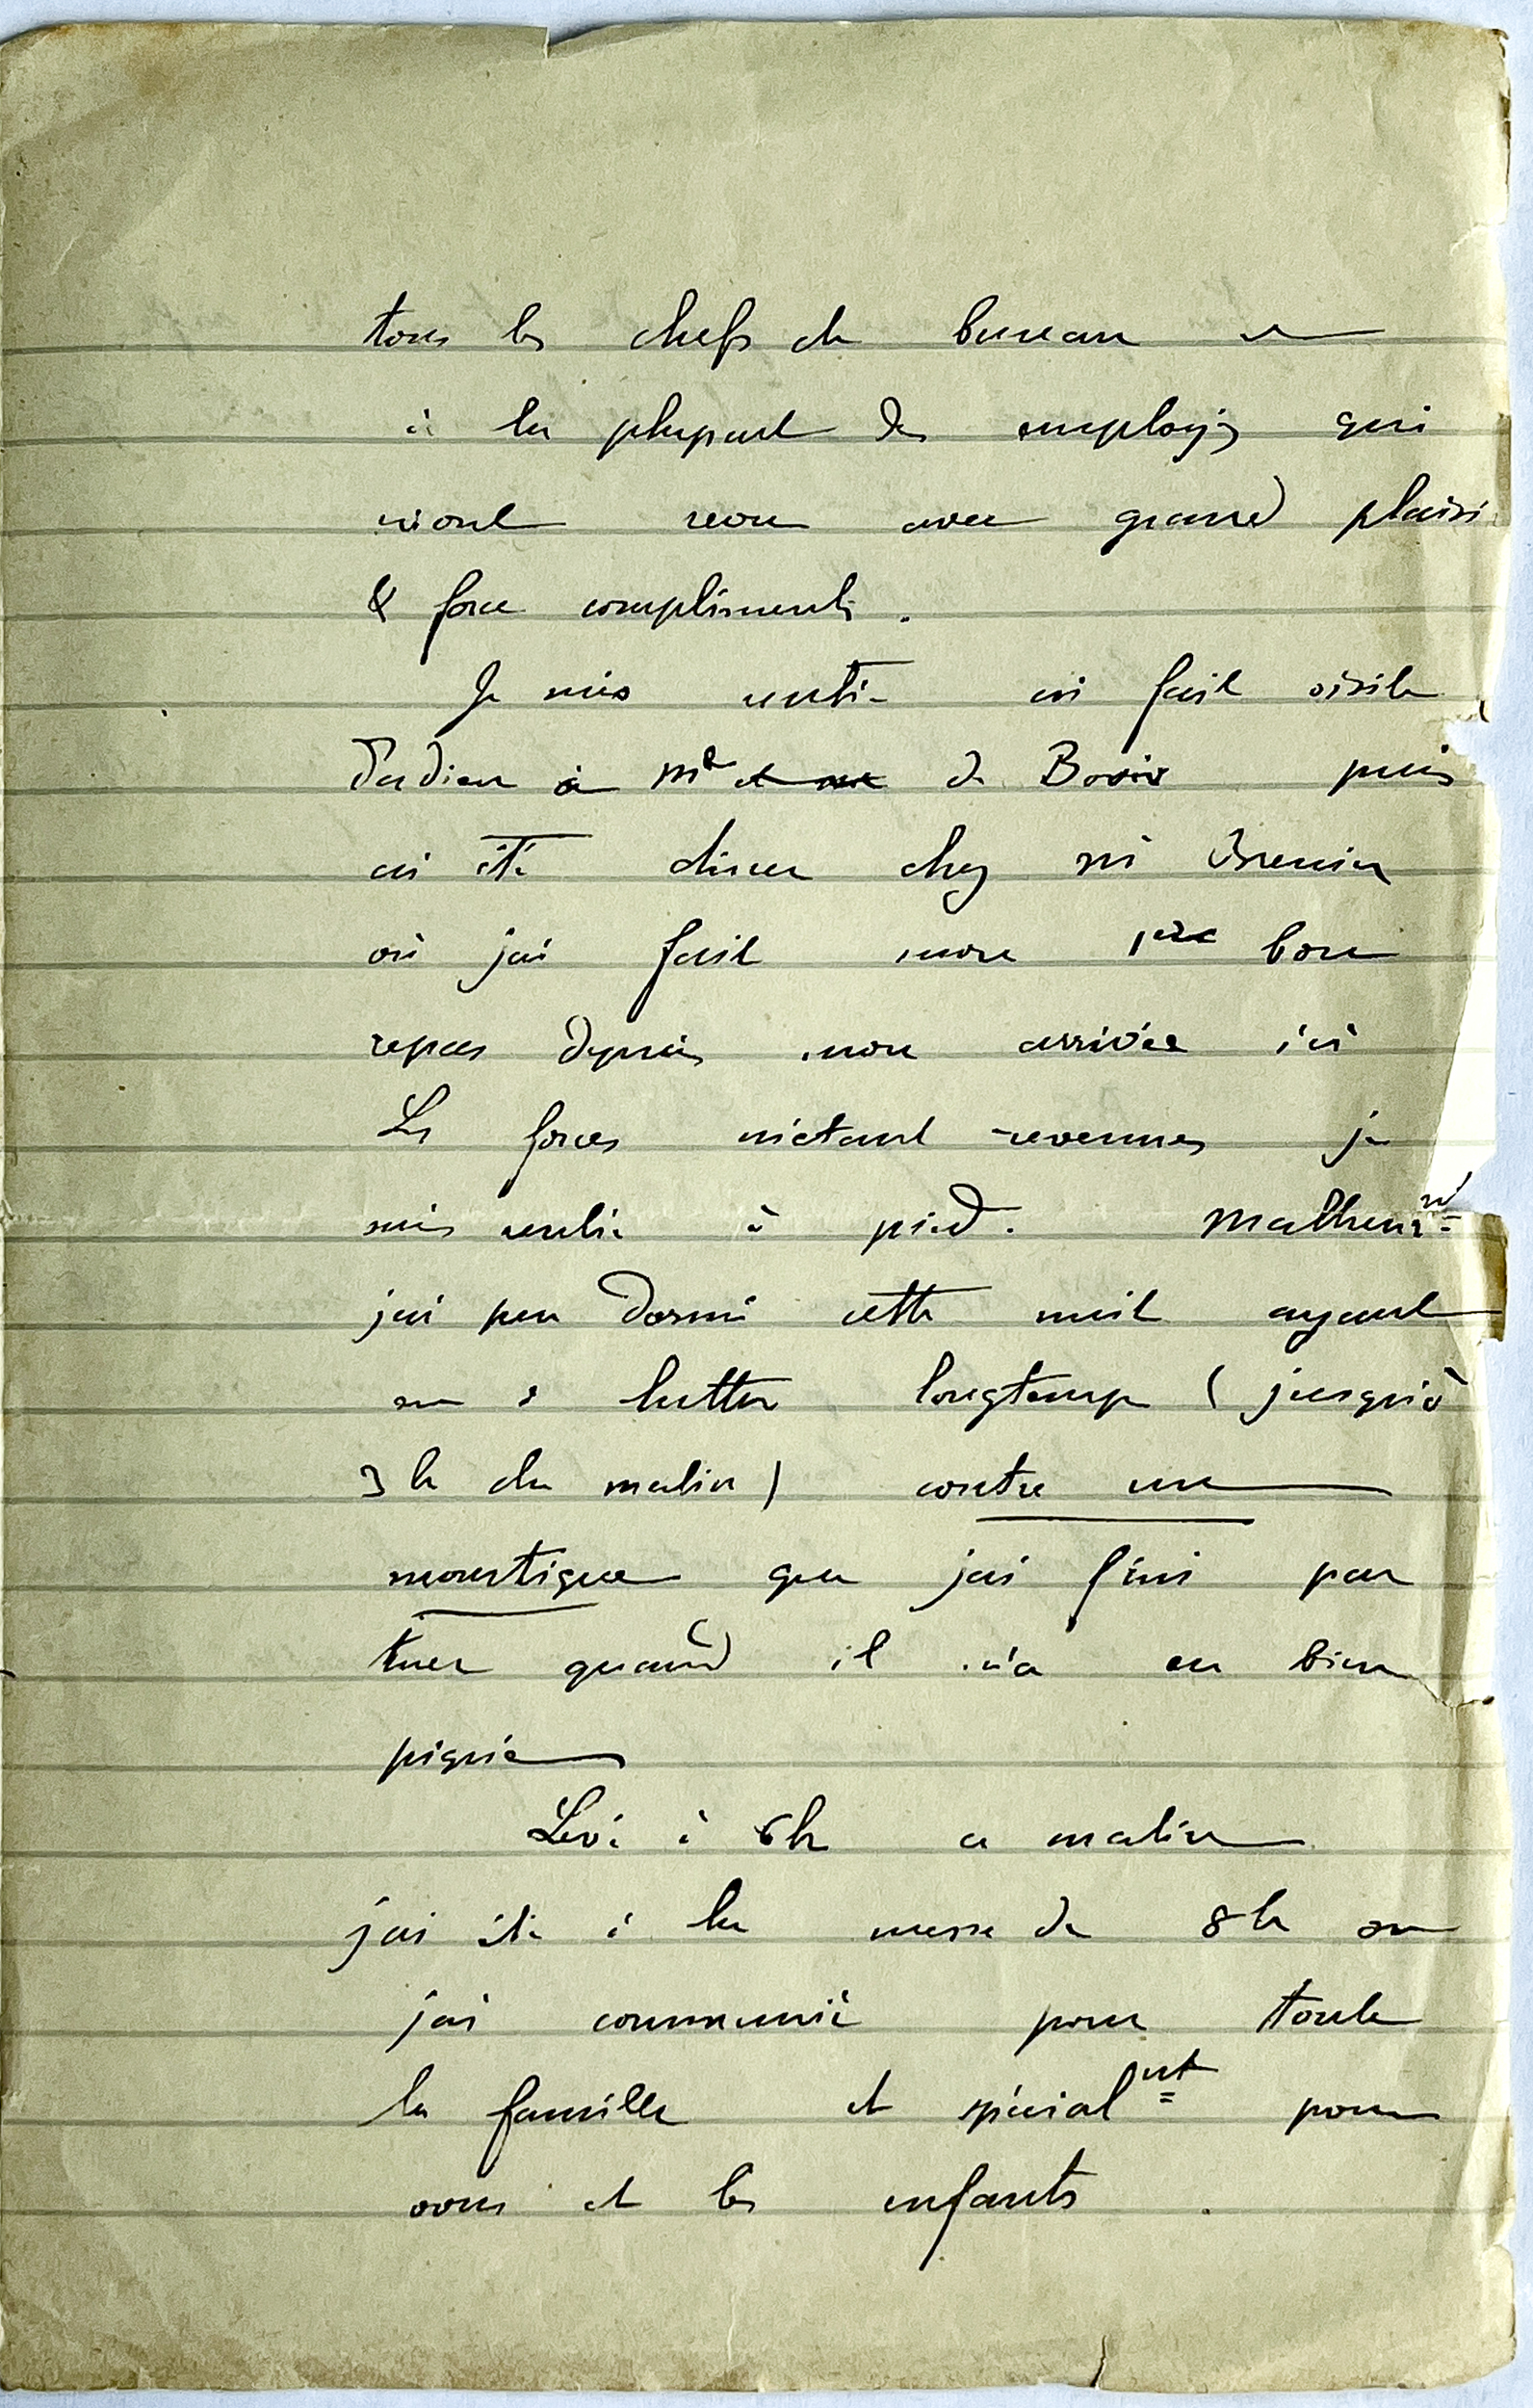 tous les chefs de bureau et
à la plupart des employés qui
m'ont reçu avec grand plaisi
& force compliments.
Je suis rentré ai fait visite
d'adieu à Mr de Boxis puis
ai été diner chez
où j'ai fait mon 1er bon
repas depuis mon arrivée ici
Les forces m'étant revenues je
suis rentré à pied. Malheurt
j'ai peu dormi cette nuit ayant
eu à lutter longtemps (jusqu'à
3 h du matin) contre un
moustique que j'ai fini par
tuer quand il m'a eu bien
piqué
Levé à 6h ce matin
j'ai été à la messe de 8h où
j'ai communié pour toute
la famille et spécialt pour
vous et les enfants.